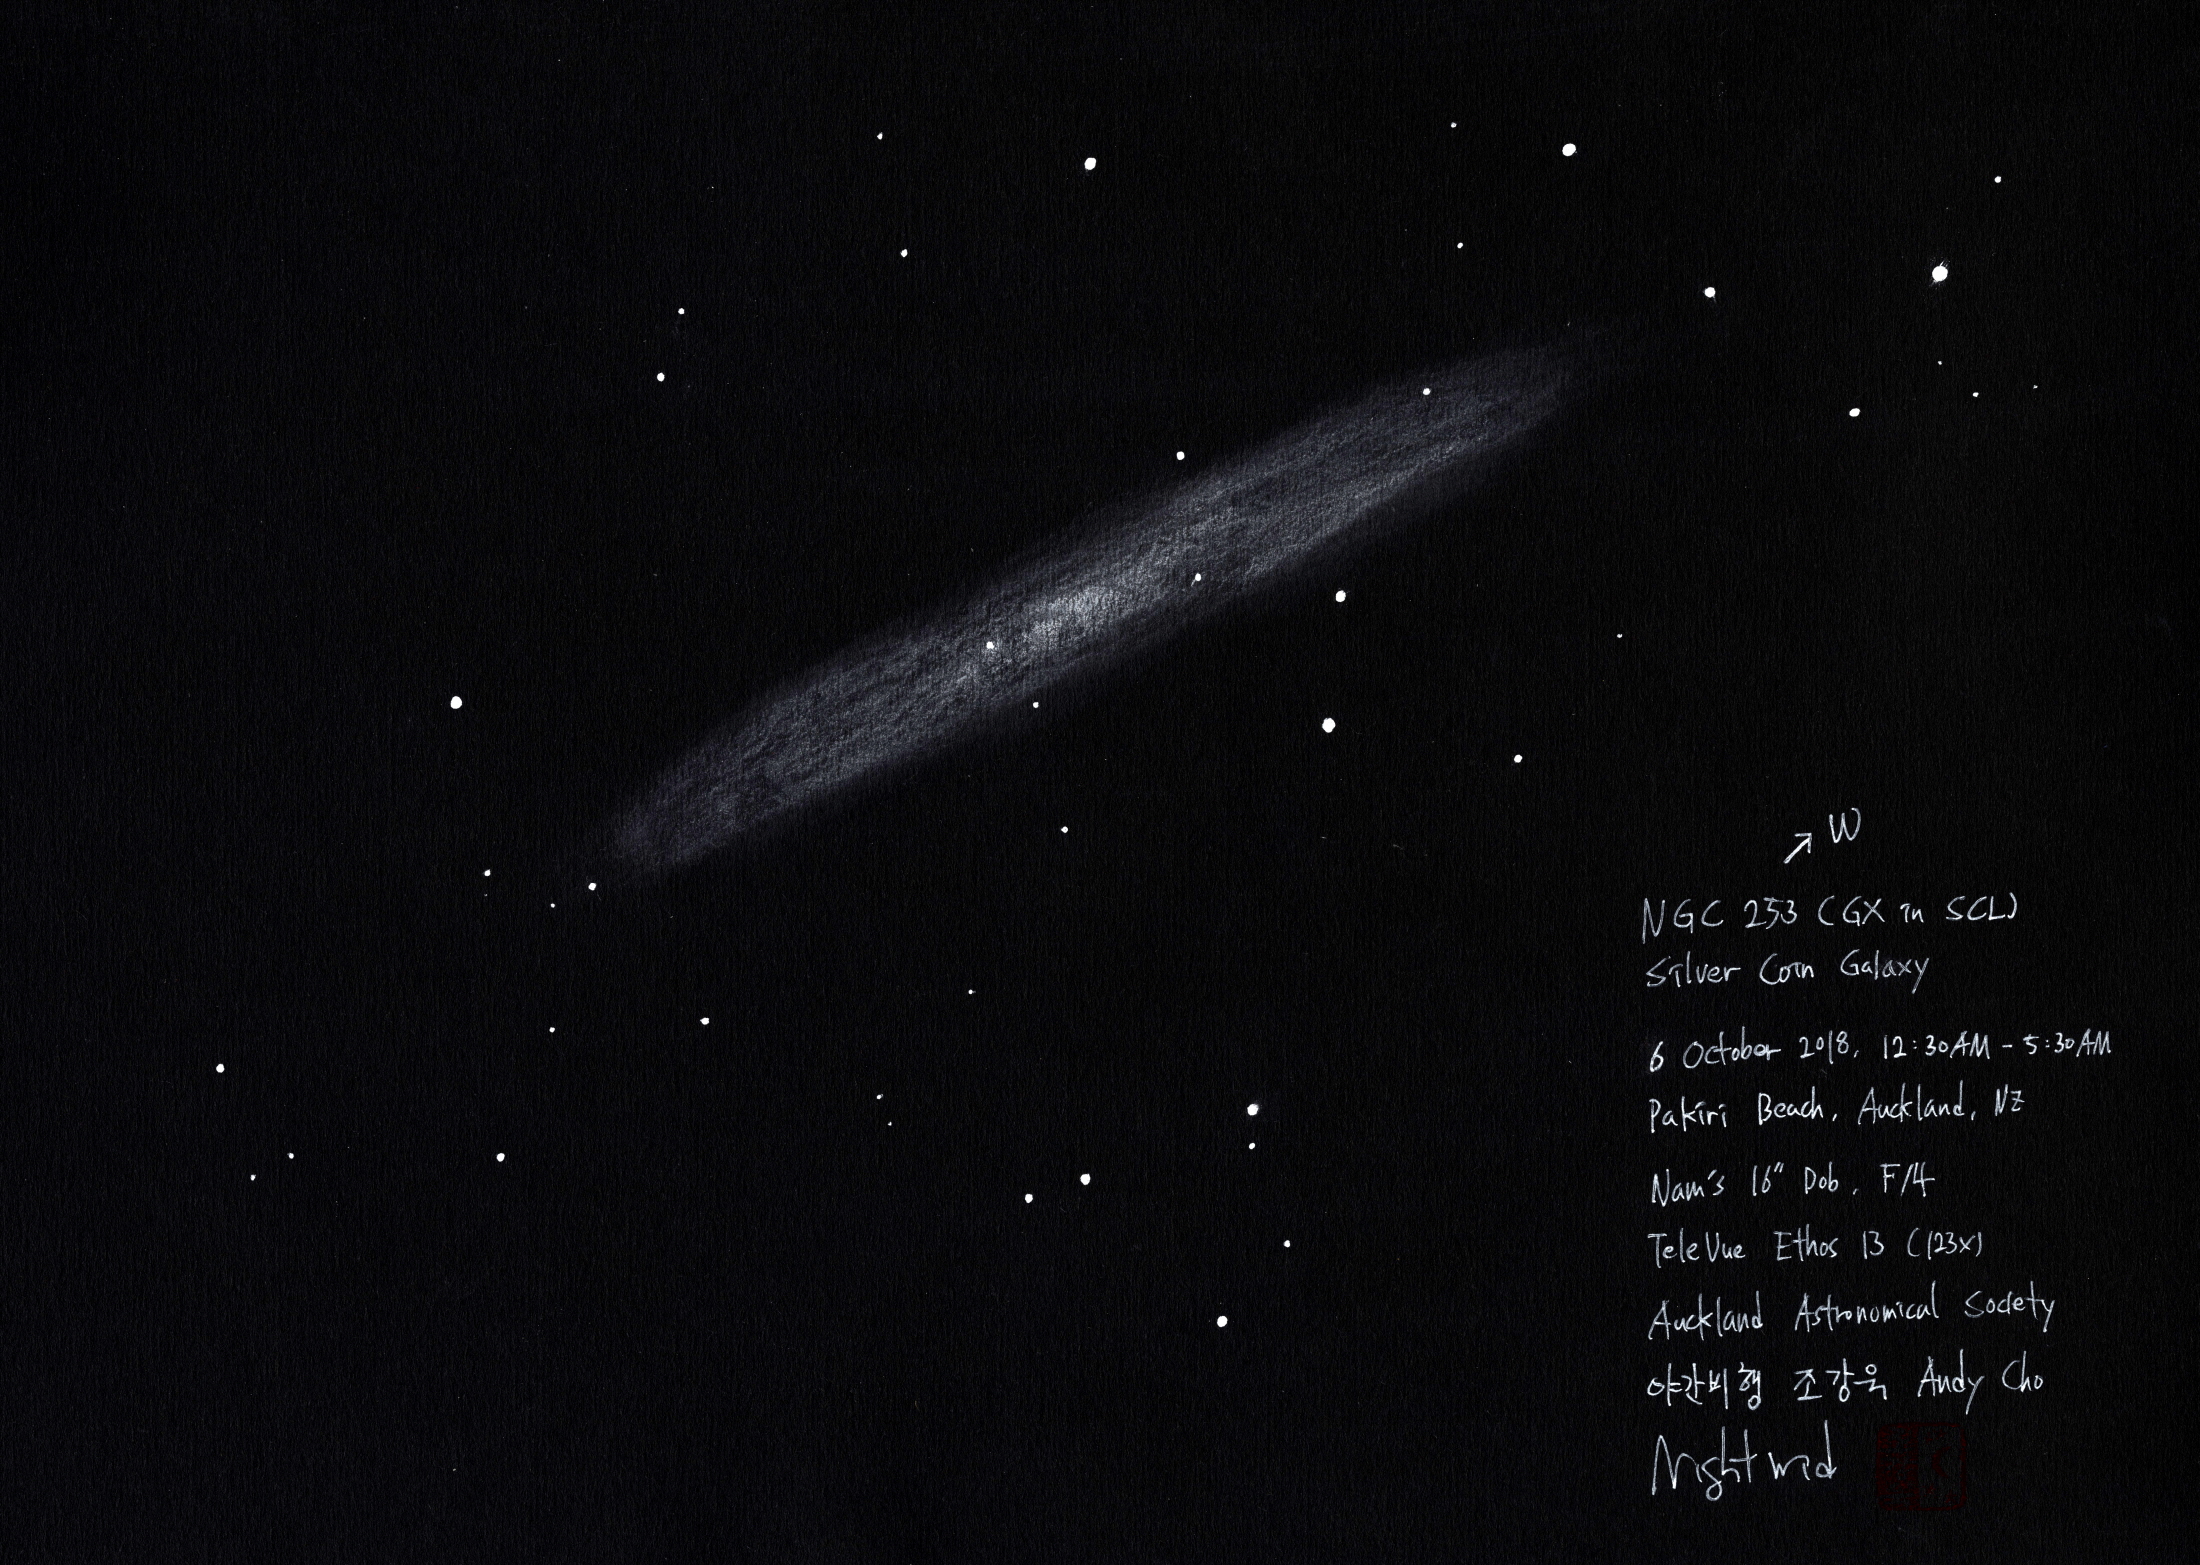 ↗ W
NGC 253 (GX in SCL)
Silver Coin Galaxy
6 October 2018, 12:30AM - 5:30AM
Pakiri Beach, Auckland, NZ
Nam's 16" Dob, F/4
TeleVue Ethos 13 (123x)
Auckland Astronomical Society
야간비행 조강욱 Andy Cho
Nightwid